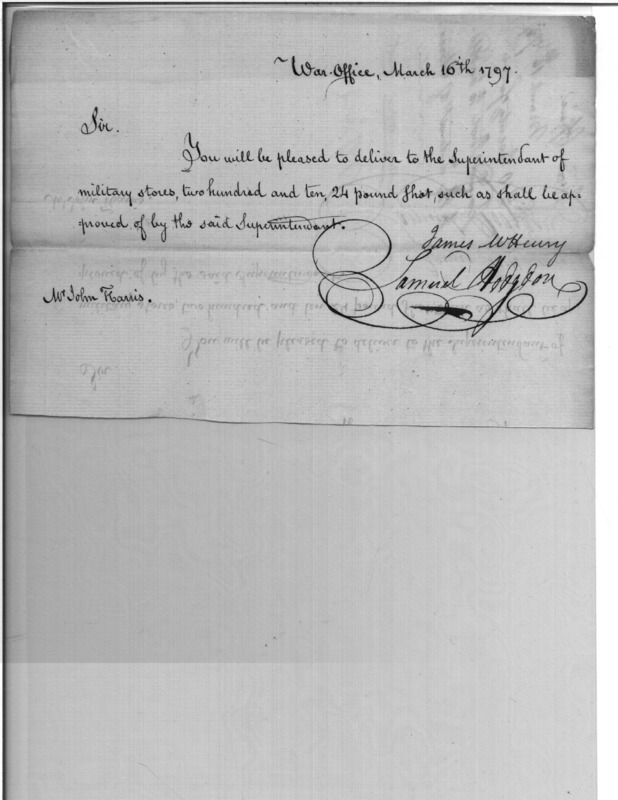 War-Office, March 16th 1797.
Sir.
You will be pleased to deliver to the Superintendant of
military stores, two hundred and ten, 24 pound shot, such as shall be ap-
proved of by the said Superintendant.
James McHenry
Samuel Hodgdon
Mr John Harris.